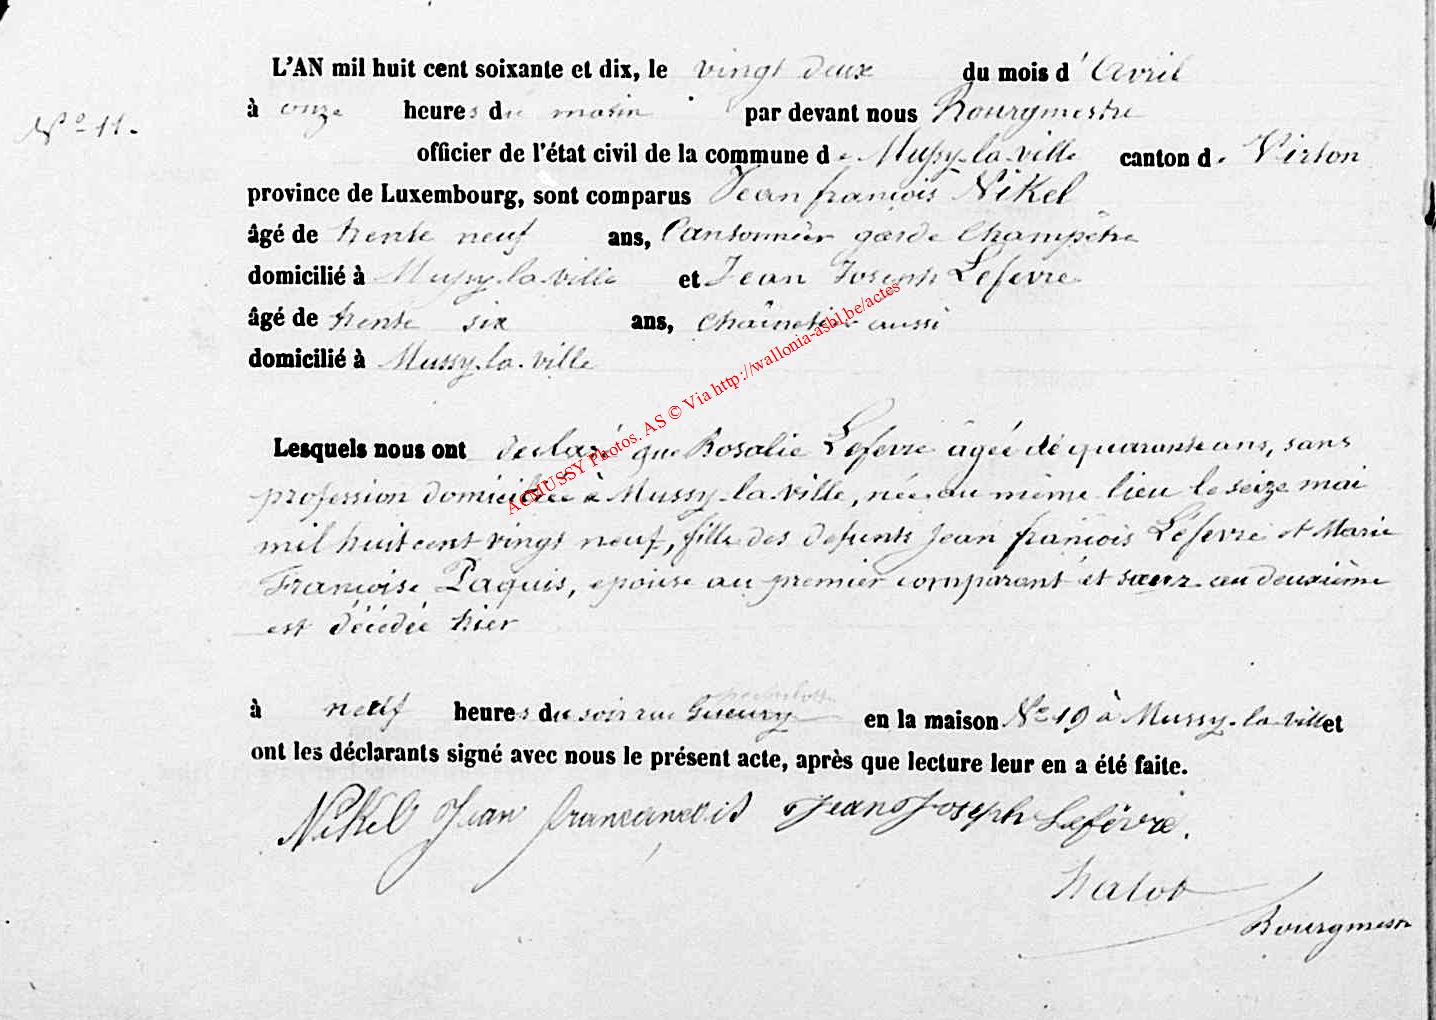 L'AN mil huit cent soixante et dix, le vingt deux du mois d'Avril
N° 11.
à onze heures du matin par devant nous Bourgmestre
officier de l'état civil de la commune de Mussy-la-ville canton de Virton
province de Luxembourg, sont comparus Jean françois Nikel
âgé de trente neuf ans, Cantonnier garde Champêtre
domicilié à Mussy-la-ville et Jean Joseph Lefevre
âgé de trente six ans, aussi
domicilié à Mussy-la-ville
ACMUSSY Photos. AS © Via http://wallonia-asbl.be/actes
Lesquels nous ont declaré que Rosalie Lefevre âgée de quarante ans, sans
profession domiciliée à Mussy-la-ville, née au même lieu le seize mai
mil huit cent vingt neuf, fille des defunts Jean françois Lefevre et Marie
Françoise Paquis, epouse au premier comparant et sœur au deuxième
est décédée hier
à neuf heures du soir rue en la maison N° 19 à Mussy-la-ville et
ont les déclarants signé avec nous le présent acte, après que lecture leur en a été faite.
Nikel Jean Jean Joseph Lefèvre.
Halot
Bourgmestre